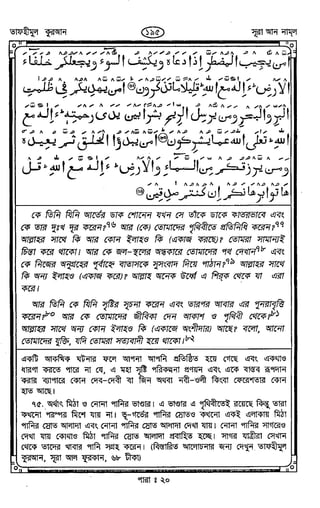 তাফহীমুল কুরআন
১৯৫
সূরা আন নাম্‌ল
أَمَّنْ يُّجِيْبُ الْمُضْطَرَّ إِذَا دَعَاهُ وَيَكْشِفُ السُّوْءَ وَيَجْعَلُكُمْ خُلَفَاءَ
الْأَرْضِ ءَ إِلٰهٌ مَّعَ اللهِ قَلِيْلًا مَّا تَذَكَّرُوْنَ أَمَّنْ يَّهْدِيْكُمْ فِيْ ظُلُمٰتِ
الْبَرِّ وَالْبَحْرِ وَمَنْ يُّرْسِلُ الرِّيٰحَ بُشْرًا بَيْنَ يَدَيْ رَحْمَتِهٖ ءَ إِلٰهٌ مَّعَ
اللهِ تَعٰلَى اللهُ عَمَّا يُشْرِكُوْنَ أَمَّنْ يَّبْدَؤُا الْخَلْقَ ثُمَّ يُعِيْدُهٗ
وَمَنْ يَّرْزُقُكُمْ مِّنَ السَّمَاءِ وَالْأَرْضِ ءَ إِلٰهٌ مَّعَ اللهِ قُلْ
هَاتُوْا بُرْهَانَكُمْ إِنْ كُنْتُمْ صٰدِقِيْنَ
কে তিনি যিনি আর্তের ডাক শোনেন যখন সে তাঁকে ডাকে কাতরভাবে এবং
কে তার দুঃখ দূর করেন? আর (কে) তোমাদের পৃথিবীর প্রতিনিধি করেন?
আল্লাহর সাথে কি আর কোন ইলাহও কি (একাজ করছে)? তোমরা সামান্যই
চিন্তা করে থাকো। আর কে জল-স্থলের অন্ধকারে তোমাদের পথ দেখান এবং
কে নিজের অনুগ্রহের পূর্বাহ্নে বাতাসকে সুসংবাদ দিয়ে পাঠান? আল্লাহর সাথে
কি অন্য ইলাহও (একাজ করে)? আল্লাহ অনেক উর্ধ্বে এ শির্‌ক থেকে যা এরা
করে।
আর তিনি কে যিনি সৃষ্টির সূচনা করেন এবং তারপর আবার এর পুনরাবৃত্তি
করেন? আর কে তোমাদের জীবিকা দেন আকাশ ও পৃথিবী থেকে?
আল্লাহর সাথে অন্য কোন ইলাহও কি (একাজে অংশীদার) আছে? বলো, আনো
তোমাদের যুক্তি, যদি তোমরা সত্যবাদী হয়ে থাকো।
একটি আকস্মিক ঘটনার ফলে আপনা আপনি প্রতিষ্ঠিত হয়ে গেছে এবং একথাও
ধারণা করতে পারে না যে, এ মহা সৃষ্টি পরিকল্পনা প্রণয়ন এবং একে বাস্তব রূপদান
করার ব্যাপারে কোন দেব-দেবী বা জিন অথবা নবী-ওলী কিংবা ফেরেশতার কোন
হাত আছে।
৭৫. অর্থাৎ মিঠা ও নোনা পানির ভাণ্ডার। এ ভাণ্ডার এ পৃথিবীতেই রয়েছে কিন্তু তারা
কখনো পরস্পর মিশে যায় না। ভূ-গর্ভের পানির স্রোতও কখনো একই এলাকায় মিঠা
পানির স্রোত আলাদা এবং নোনা পানির স্রোত আলাদা দেখা যায়। নোনা পানির সাগরেও
দেখা যায় কোথাও মিঠা পানির স্রোত আলাদা প্রবাহিত হচ্ছে। সাগর যাত্রীরা সেখান
থেকে তাদের খাবার পানি সংগ্রহ করেন। (বিস্তারিত আলোচনার জন্য দেখুন তাফহীমুল
কুরআন, সূরা আল ফুরকান, ৬৮ টীকা)
পারা : ২০